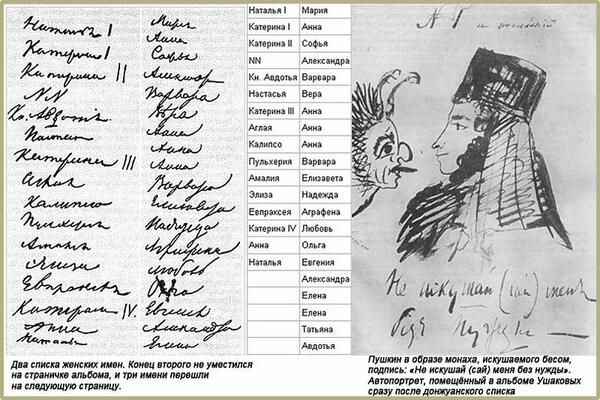 Наталья I
Катерина I
Катерина II
NN
Кн. Авдотия
Настасья
Катерина III
Аглая
Калипсо
Пульхерия
Амалия
Элиза
Евпраксея
Катерина IV.
Анна
Наталья
Мария
Анна
Софья
Александра
Варвара
Вера
Анна
Анна
Анна
Варвара
Елизавета
Надежда
Аграфена
Любовь
Ольга
Евгения
Александра
Елена
Наталья I Мария
Катерина I Анна
Катерина II Софья
NN Александра
Кн. Авдотья Варвара
Настасья Вера
Катерина III Анна
Аглая Анна
Калипсо Анна
Пульхерия Варвара
Амалия Елизавета
Элиза Надежда
Евпраксея Аграфена
Катерина IV Любовь
Анна Ольга
Наталья Евгения
Александра
Елена
Елена
Татьяна
Авдотья
Не искушай (сай) меня
без нужды
Два списка женских имен. Конец второго не уместился
на страничке альбома, и три имени перешли
на следующую страницу.
Пушкин в образе монаха, искушаемого бесом,
подпись: «Не искушай (сай) меня без нужды».
Автопортрет, помещённый в альбоме Ушаковых
сразу после донжуанского списка